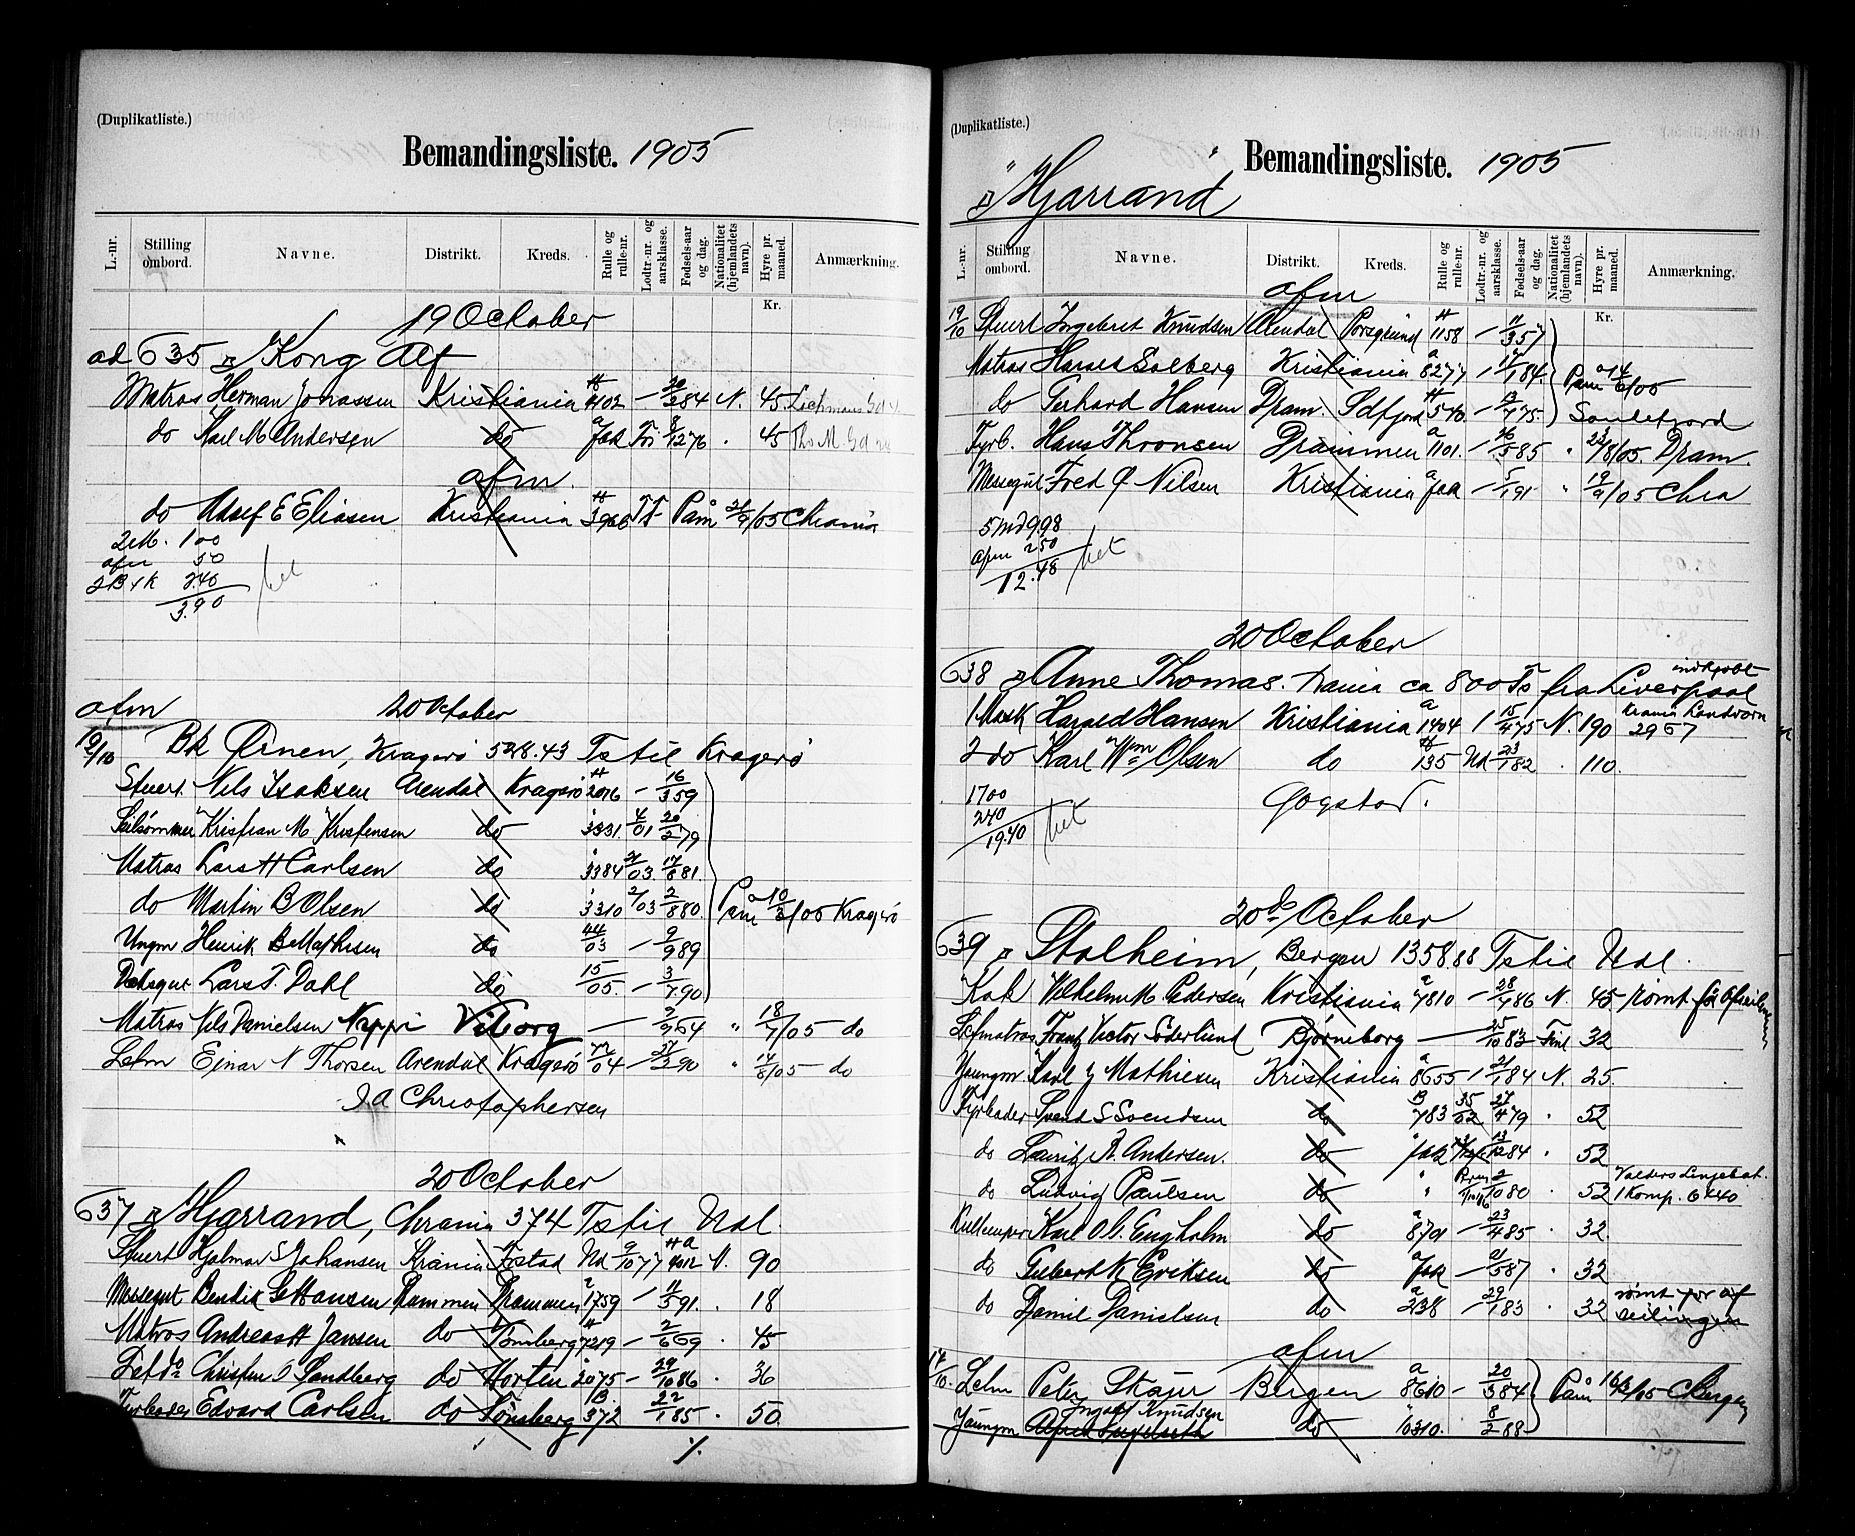 (Duplikatliste.)
Bemandingsliste. 1905
L.-nr. Stilling ombord. Navne. Distrikt. Kreds. Rulle og rulle-nr. Lodtr.-nr. og aarsklasse. Fødsels-aar og dag. Nationalitet (hjemlandets navn). Hyre pr. maaned. Anmærkning.
Kr.
19 October
ad 635 Kong Alf
Matros Herman Jonassen Kristiania 45
do Karl M Andersen do 12 76 45
afm.
do E Eliasen Kristiania Påm /05 Chrania
2M. 1 00
afm 50
2.40
3.90
afm 20 October
Bk Ørnen, Kragerø 528.43 Ts til Kragerø
Stuert Nils Isaksen Arendal Kragerø 2076 - 16/3 59
Seilsømmer Kristian M Kristensen do 3331 4/01 20/2 79
Matros Lars H Carlsen do 3384 /03 81
do Martin B Olsen do 3310 2/03 2/8 80 Påm 10/3/05 Kragerø
Ungm Henrik B Mathisen do 44/03 - 9/9 89
Dæksgut Lars T. Dahl do 15/05 - 3/7 90
Matros Nils Danielsen Viborg — 64 " 18/7/05 do
Letm Einar N Thorsen Arendal Kragerø /04 - 90 " 14/8/05 do
J A Christophersen
20 October
637 Hjarrand, Chrania 374 Ts til Udl.
Stuert Hjalmar S Johansen Krania N. 90
Messegut Bendik G Hansen Drammen Drammen 1759 - 11/5 91 18
Matros Andreas H Jansen do Tønsberg 7219 - 2/6 69 45
Let do Christen Sandberg do Horten 2075 - 29/10 86 36
Fyrbøder Edvard Carlsen do Tønsberg 372 22/1 85 50
%
(Duplikatliste.)
Bemandingsliste. 1905
"Hjarrand"
L.-nr. Stilling ombord. Navne. Distrikt. Kreds. Rulle og rulle-nr. Lodtr.-nr. og aarsklasse. Fødsels-aar og dag. Nationalitet (hjemlandets navn). Hyre pr. maaned. Anmærkning.
Kr.
afm
19/10 Stuert Ingebret Knudsen Arendal Porsgrund 1158 - 11/3 57
Matros Harald Solberg Kristiania 8277 84 Påm 14/6/05
do Gerhard Hansen Dram Sdfjord 540 - 75 Sandefjord
Fyrb. Hans Thronsen Drammen 1101 - 85 " 22/8/05. Dram.
Messegut Fred Q Nilsen Kristiania - 5/1 91 " 19/9/05 Chra
5 Md 9.98
afm 2.50
12.48
20 October
638 Anne Thomas. Krania ca 800 Ts fra Liverpool indkjøbt
1 Mask Harald Hansen Kristiania 1404 1 15/4 75 N. 190
2 do Karl Wm Olsen do 135 Ud 23/1 82 . 110.
1700
240
19.40
Gogstad.
20de October
639 Stalheim, Bergen 1358.88 Ts til Udl.
Kok Vilhelm M. Pedersen Kristiania 7810 - 28/7 86 N. 45 rømt før Afseilingen
Letmatros Frantz Victor Söderlund Bjørneborg — 25/10 83 Finl 32
Youngm Karl J Mathiesen Kristiania 8655 84 N. 25.
Fyrbøder Svend S Svendsen do 783 35/02 27/4 79 . 52
do Lauritz A. Andersen. do 13/12 84 . 52
do Ludvig Paulsen do " 2/10 80 . 52 1 Komp. 6 440
Kullemper Karl O. Engholm do 8791 - 23/4 85 . 32.
do Gulbert K Eriksen do 87 . 32
do Daniel Danielsen do 238 - 29/1 83 . 32 rømt for af seilingen
afm
14/10. Letm Peter Skaar Bergen 8610 - 20/3 84 Påm 16/2/05 Chbergen
Ingolf Knudsen
Youngm Alfred do 10310. 8/2 88